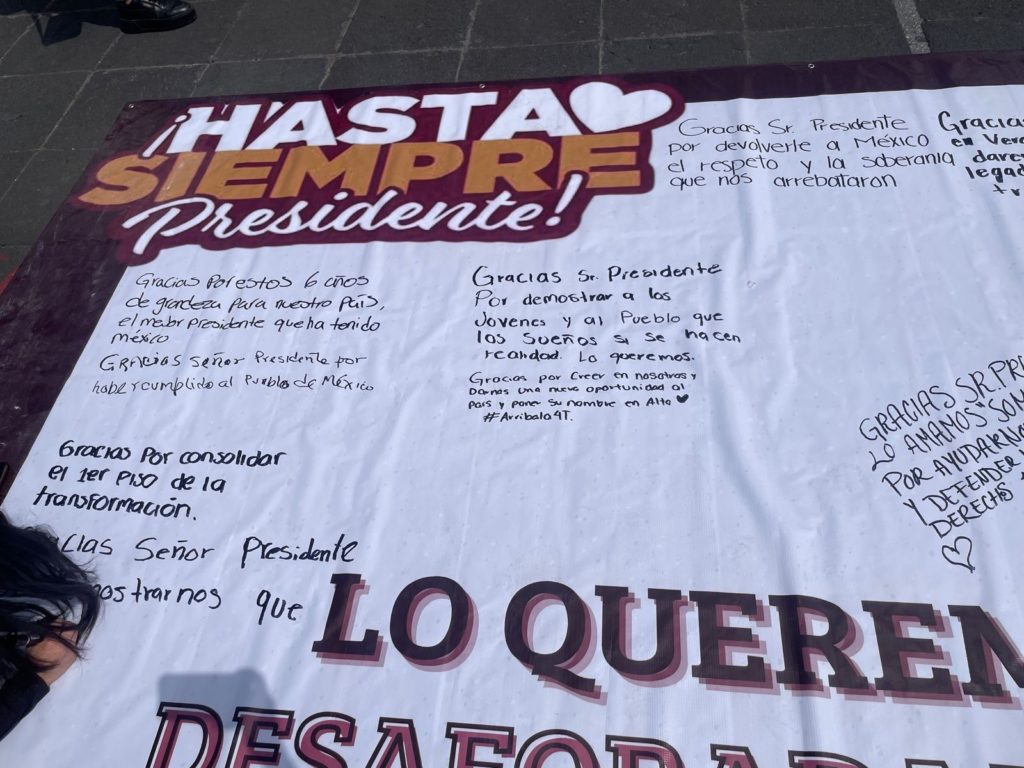 ¡HASTA
SIEMPRE
Presidente!
Gracias Sr. Presidente
por devolverle a México
el respeto y la soberanía
que nos arrebataron
Gracias
en
legad
Gracias Por estos 6 años
de grandeza para nuestro país,
el mejor presidente que ha tenido
méxico
GRACIAS señor Presidente por
haber cumplido al Pueblo de México
Gracias Sr. Presidente
Por demostrar a los
Jovenes y al Pueblo que
los sueños si se hacen
realidad. Lo queremos.
Gracias por Creer en nosotros y
Darnos una nueva oportunidad al
País y poner su nombre en Alto
#Arribala4T.
GRACIAS SR. PRE
LO AMAMOS
POR AYUDARNO
Y DEFENDER
DERECHOS
Gracias Por consolidar
el 1er PISO de la
transformación.
cias Señor Presidente
ostrarnos que
LO QUEREM
DESAFORADA